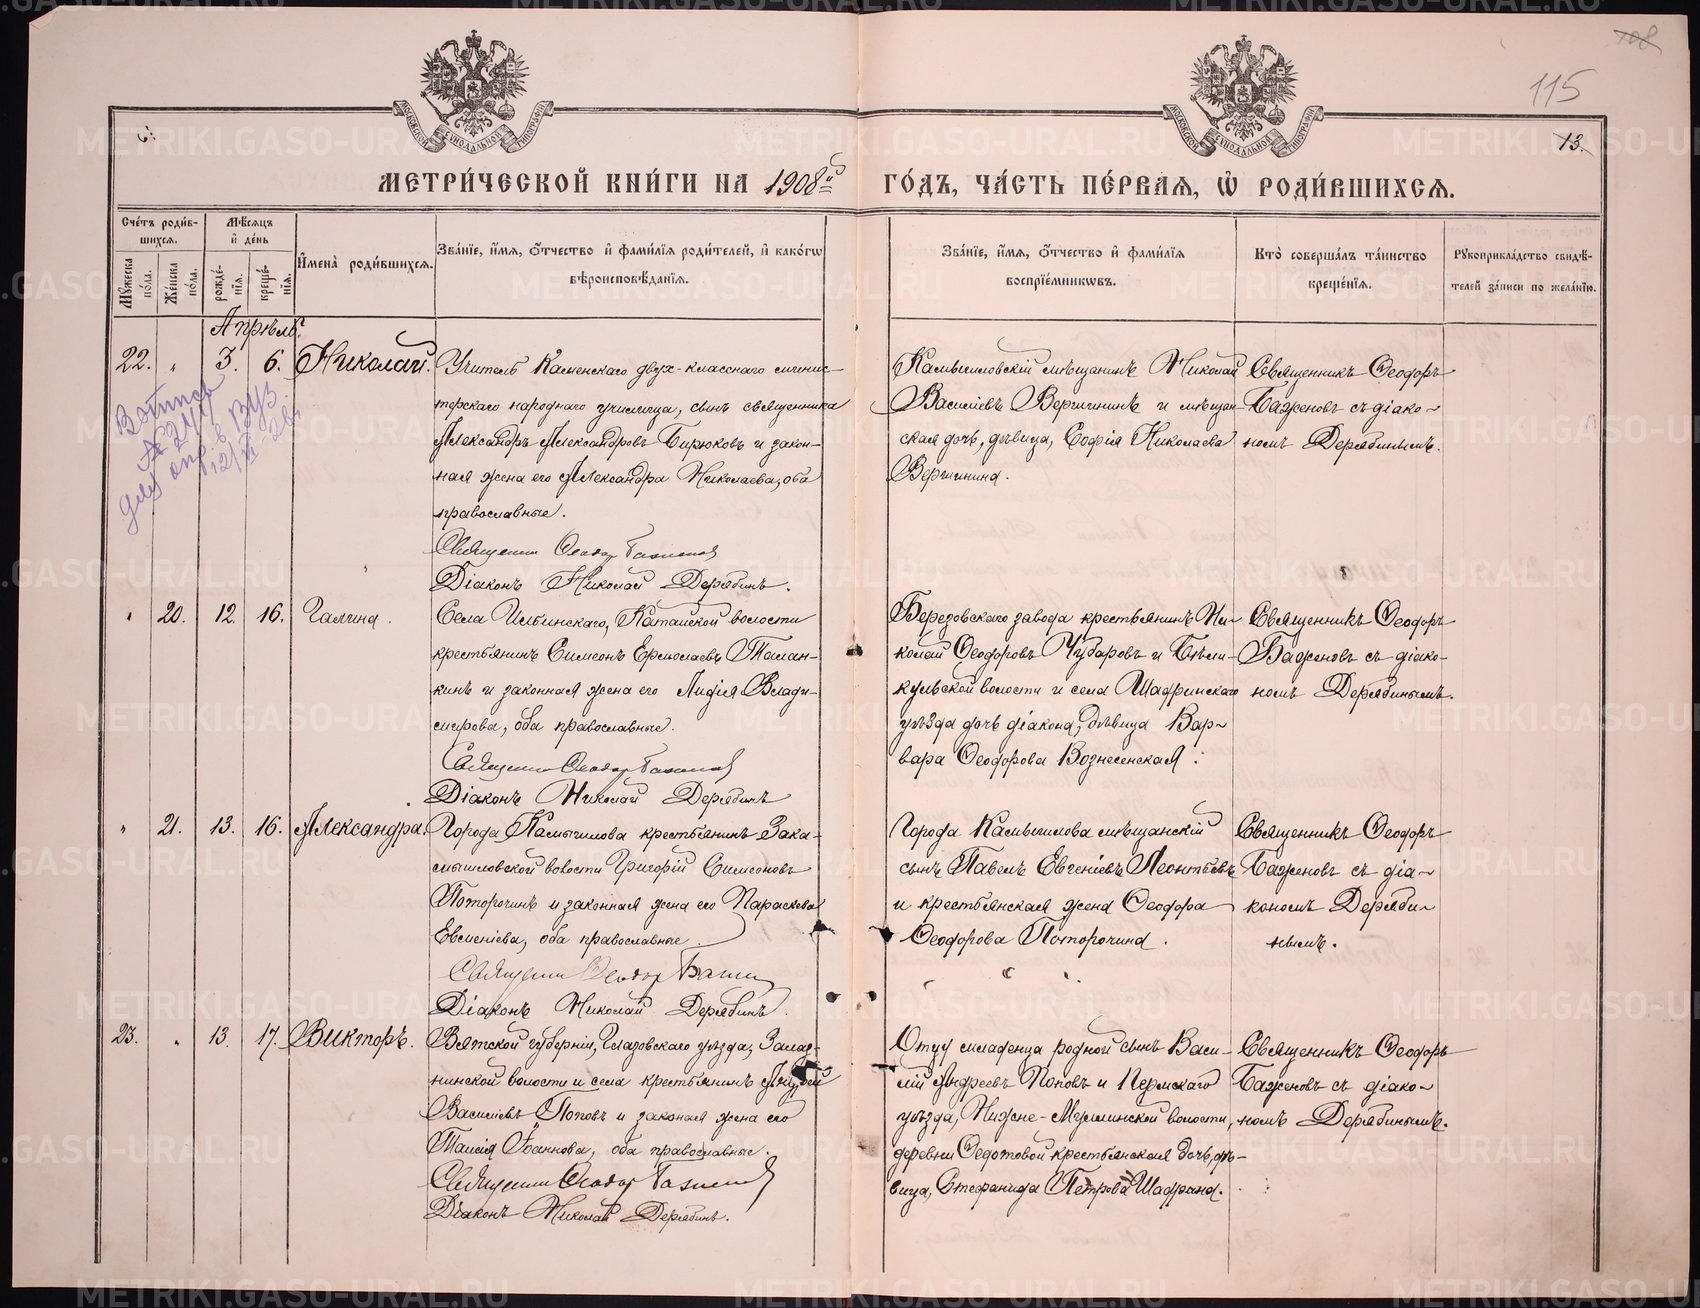 115
13.
МЕТРИЧЕСКОЙ КНИГИ НА 1908й ГОДЪ, ЧАСТЬ ПЕРВАЯ, Ѡ РОДИВШИХСЯ.
Счетъ родившихся.
Мужеска пола.
Женска пола.
Мѣсяцъ и день
рожденія.
крещенія.
Имена родившихся.
Званіе, имя, отчество и фамилія родителей, и какогѡ вѣроисповѣданія.
Званіе, имя, отчество и фамилія воспріемникѡвъ.
Кто совершалъ таинство крещенія.
Рукоприкладство свидѣтелей записи по желанію.
Апрѣль.
22. " 3. 6. Николай.
Учитель Каменскаго двух-класснаго минис-
терскаго народнаго училища, сынъ священника
Александръ Александровъ Бирюковъ и закон-
ная жена его Александра Николаева, оба
православные.
Священник Ѳеодор Баженов
Діаконъ Николай Дерябинъ.
Камышловскій мѣщанинъ Николай
Василіевъ Вершининъ и мѣщан-
ская дочь, дѣвица, Софія Николаева
Вершинина.
Священникъ Ѳеодоръ
Баженовъ съ діако-
номъ Дерябинымъ.
" 20. 12. 16. Галина.
Села Ильинскаго, Катайской волости
крестьянинъ Симеонъ Ермолаевъ Талан-
кинъ и законная жена его Лидія Влади-
мірова, оба православные.
Священник Ѳеодор Баженов
Діаконъ Николай Дерябинъ
Березовскаго завода крестьянинъ Ни-
колай Ѳеодоровъ Чубаровъ и Бѣли-
кульской волости и села Шадринскаго
уѣзда дочь діакона, дѣвица Вар-
вара Ѳеодорова Вознесенская.
Священникъ Ѳеодоръ
Баженовъ съ діако-
номъ Дерябинымъ.
" 21. 13. 16. Александра.
Города Камышлова крестьянинъ Зака-
мышловской волости Григорій Симеоновъ
Поторочинъ и законная жена его Параскева
Евменіева, оба православные.
Священник Ѳеодор Баженов
Діаконъ Николай Дерябинъ.
Города Камышлова мѣщанскій
сынъ Павелъ Евгеніевъ Леонтьевъ
и крестьянская жена Ѳеодора
Ѳеодорова Поторочина.
Священникъ Ѳеодоръ
Баженовъ съ діа-
кономъ Деряби-
нымъ.
23. " 13. 17. Викторъ.
Вятской губерніи, Глазовскаго уѣзда, Залаз-
нинской волости и села крестьянинъ Андрей
Василіевъ Поповъ и законая жена его
Таисія Іоаннова, оба православные.
Священник Ѳеодор Баженов
Діаконъ Николай Дерябинъ.
Отцу младенца родной сынъ Васи-
лій Андреевъ Поповъ и Пермскаго
уѣзда, Нижне-Муллинской волости,
деревни Ѳедотовой крестьянская дочь, дѣ-
вица, Стефанида Петрова Шафрана.
Священникъ Ѳеодоръ
Баженовъ съ діако-
номъ Дерябинымъ.